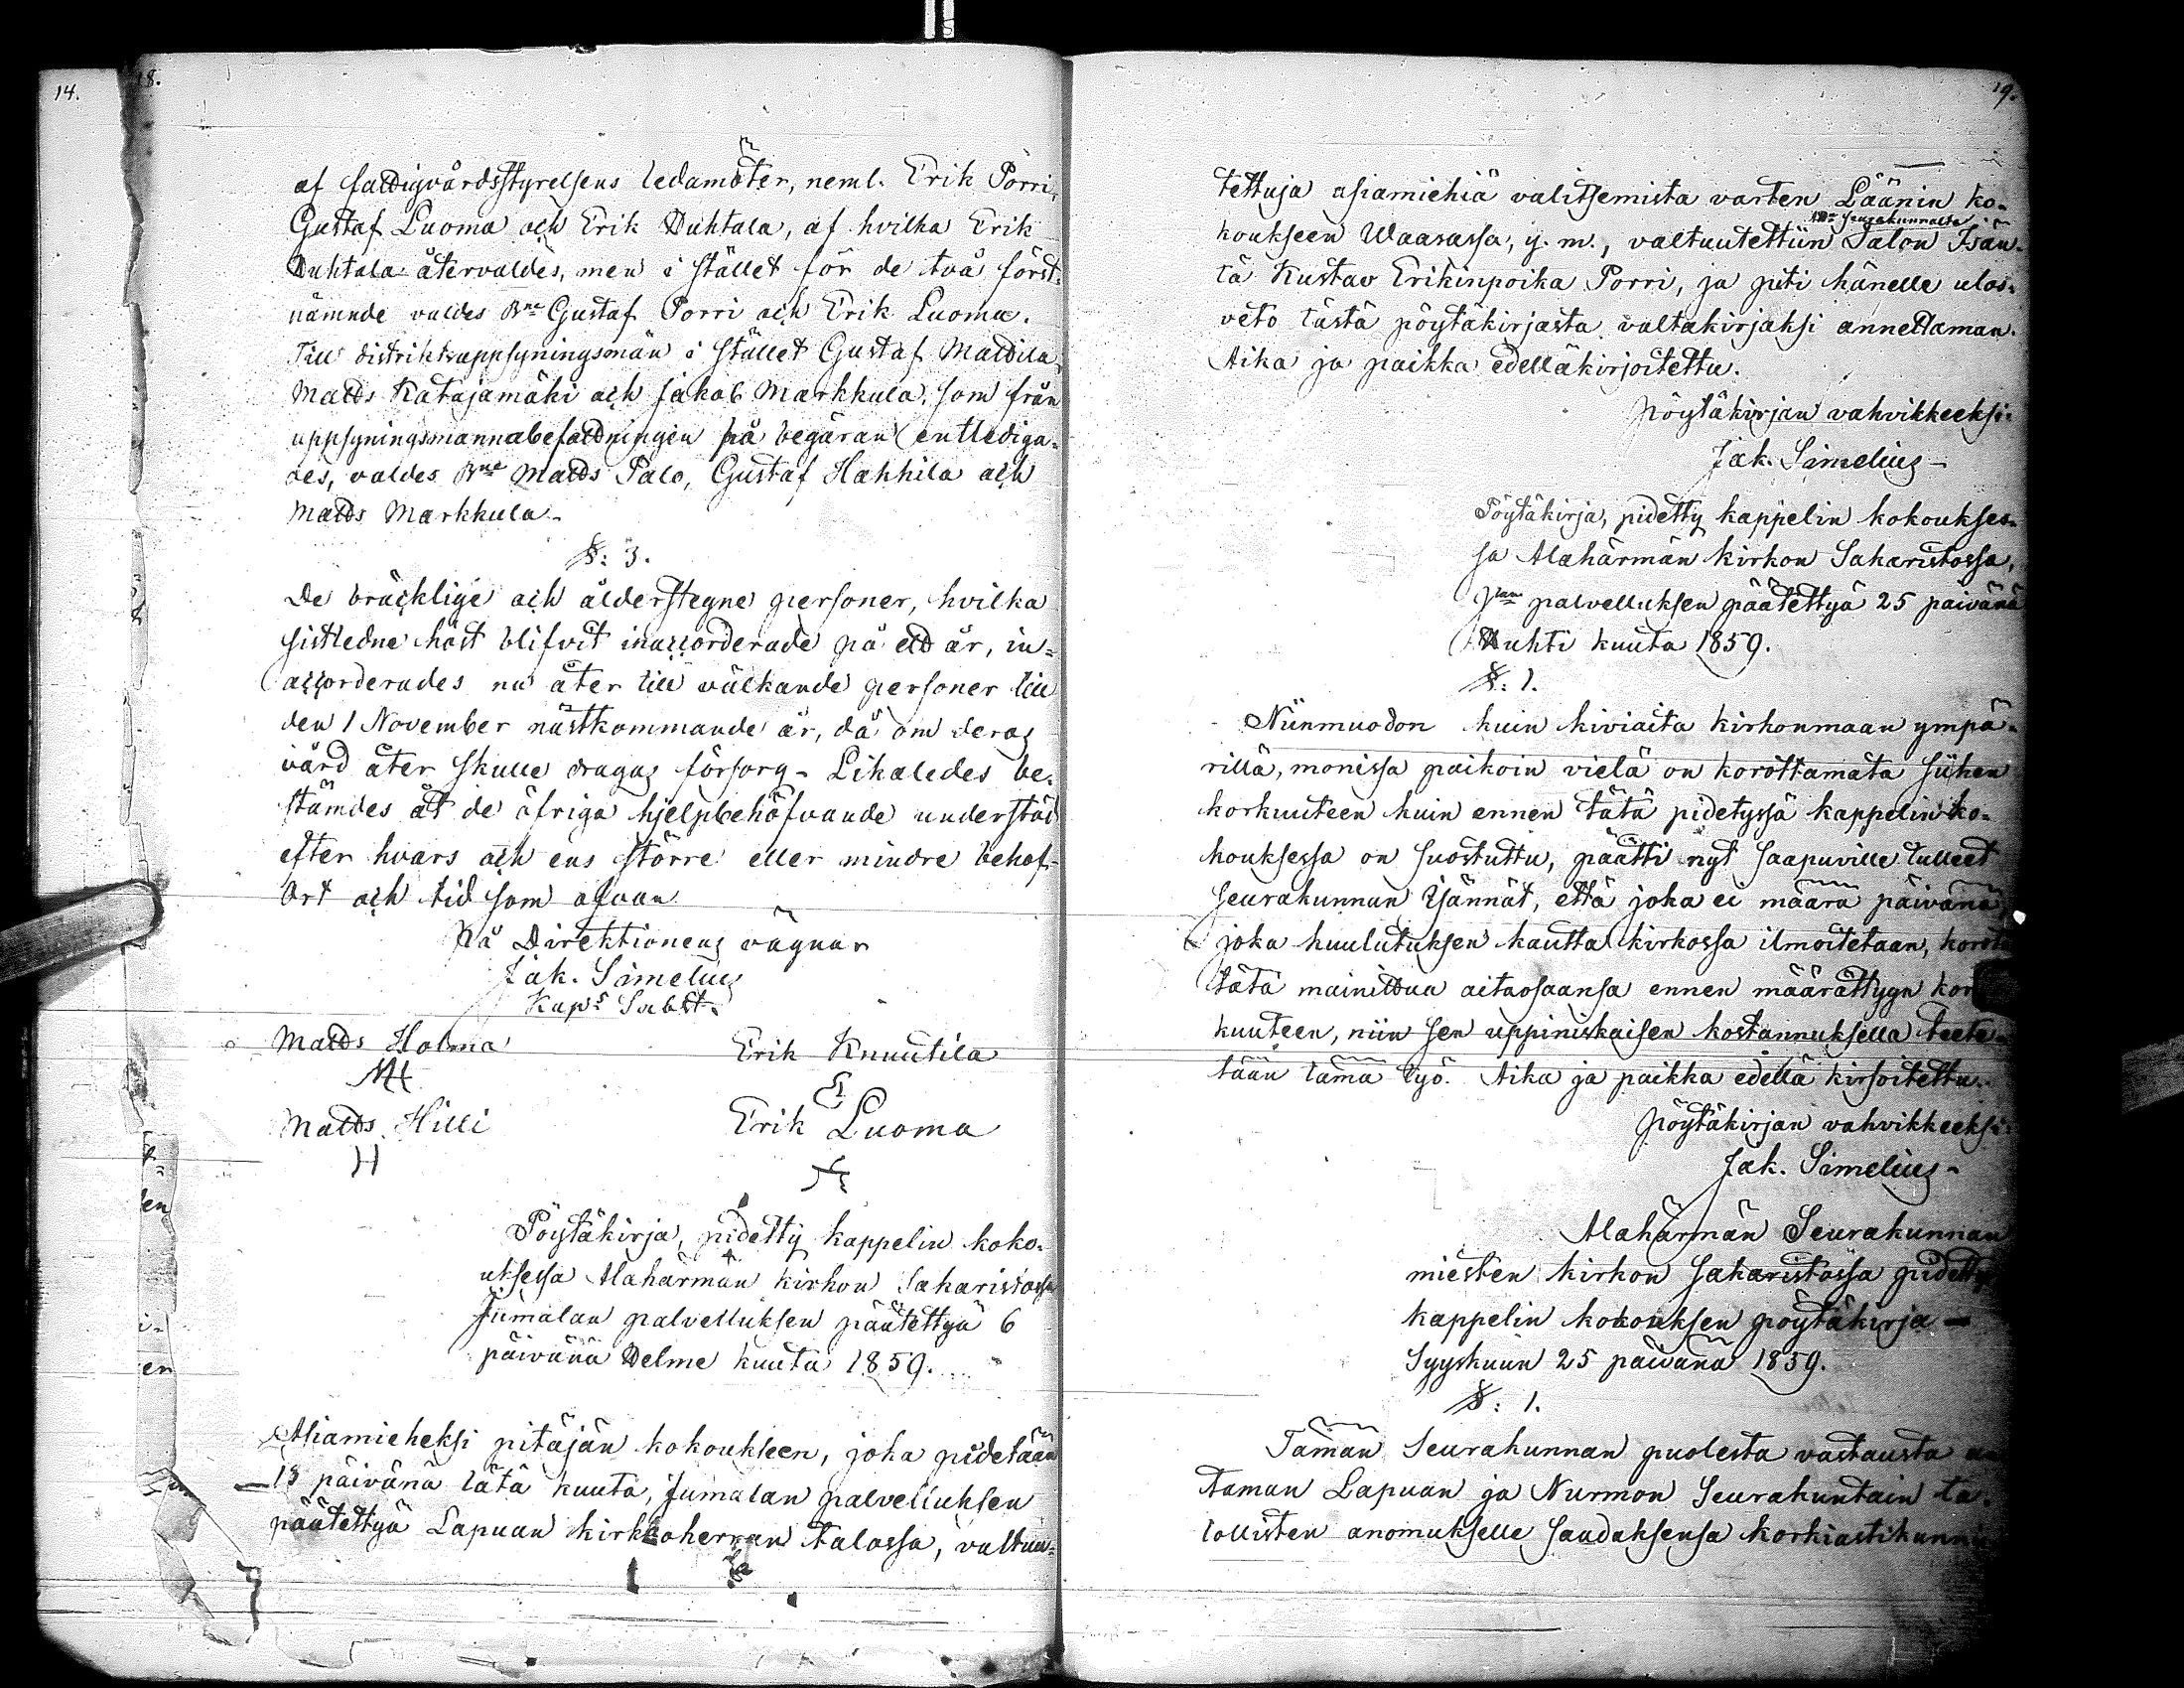 14.
18.
af fattigvårdsstyrelsens ledamöter, neml. Erik Porri,
Gustaf Luoma och Erik Huhtala, af hvilka Erik
Huhtala återvaldes, men i stället för de två först-
nämnde valdes Bne Gustaf Porri och Erik Luoma.
Till distriktsuppsyningsmän i stället Gustaf Mattila,
Matts Katajamäki och Jakob Markkula, som från
uppsyningsmannabefattningen på begäran entlediga-
des, valdes Bne Matts Palo, Gustaf Hahhila och
Matts Markkula.
§: 3.
De bräcklige och ålderstegne personer, hvilka
sistledne höst blifvit inaccorderade på ett år, in-
accorderades nu åter till välkande personer till
den 1 November nästkommande år, då om deras
vård åter skulle dragas försorg. Likaledes be-
stämdes åt de öfriga hjelpbehöfvande understöd
efter hvars och ens större eller mindre behof.
Ort och tid som ofvan
På Direktionens vägnar
Jak. Simelius
Kaps Subst.
Matts Holma
Erik Knuutila
Matts Hilli
Erik Luoma
H
Pöytäkirja, pidetty kappelin koko-
uksessa Alahärmän kirkon Sakaristossa
Jumalan palvelluksen päätettyä 6
päivänä Helme kuuta 1859.
Asiamieheksi pitäjän kokoukseen, joka pidetään
13 päivänä tätä kuuta, Jumalan palvelluksen
päätettyä Lapuan kirkkoherran talossa, valtuu-
19.
tettuja asiamiehiä valitsemista varten Läänin ko-
seurakunnalta
koukseen Waasassa, y. m., valtuutettiin Talon Isän-
tä Kustav Erikinpoika Porri, ja piti hänelle ulos-
veto tästä pöytäkirjasta valtakirjaksi annettaman.
Aika ja paikka edelläkirjoitettu.
Pöytäkirjan vahvikkeeksi:
Jak. Simelius
Pöytäkirja, pidetty kappelin kokoukses-
sa Alahärmän kirkon Sakaristossa,
Jran palvelluksen päätettyä 25 päivänä
Huhti kuuta 1859.
§: 1.
Niinmuodon kuin kiviaita kirkonmaan ympä-
rillä, monissa paikoin vielä on korottamata siihen
korkuuteen kuin ennen tätä pidetyssä kappelin ko-
kouksessa on suostuttu, päätti nyt saapuville tulleet
seurakunnan isännät, että joka ei määrä päivänä,
joka kuulutuksen kautta kirkossa ilmoitetaan, korota
tätä mainittua aitaosaansa ennen määrättyyn kor
kuuteen, niin sen uppiniskaisen kostannuksella teete-
tään tämä työ. Aika ja paikka edellä kirjoitettu.
Pöytäkirjan vahvikkeeksi:
Jak. Simelius
Alahärmän Seurakunnan
miesten kirkon sakaristossa pidetty
kappelin kokouksen pöytäkirja
Syyskuun 25 päivänä 1859.
§: 1.
Tämän Seurakunnan puolesta vastausta an
taman Lapuan ja Nurmon Seurakuntain ta-
lollisten anomukselle saadaksensa korkiastikunni